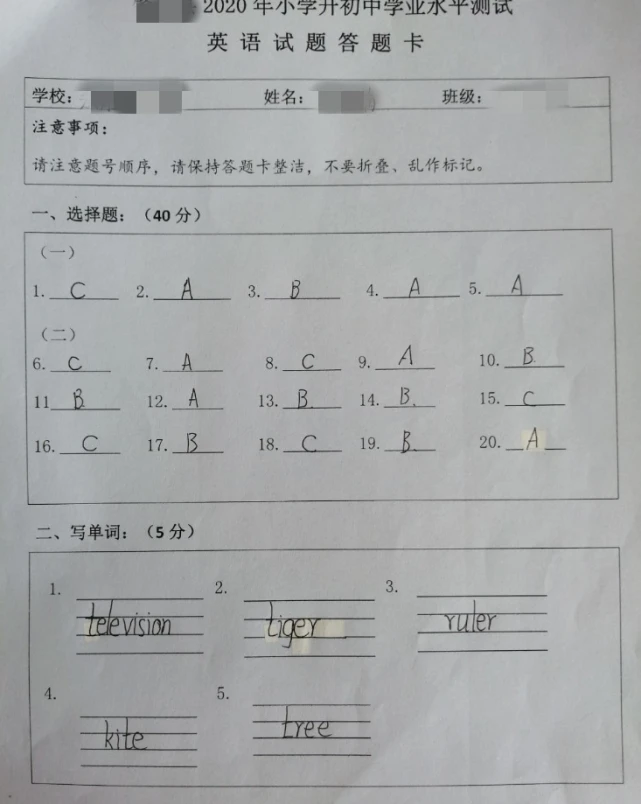 2020年小学升初中学业水平测试
英语试题答题卡
学校: 姓名: 班级:
注意事项:
请注意题号顺序，请保持答题卡整洁，不要折叠、乱作标记。
一、选择题：（40分）
（一）
1. C 2. A 3. B 4. A 5. A
（二）
6. C 7. A 8. C 9. A 10. B
11 B 12. A 13. B 14. B 15. C
16. C 17. B 18. C 19. B 20. A
二、写单词：（5分）
1. television 2. tiger 3. ruler
4. kite 5. tree